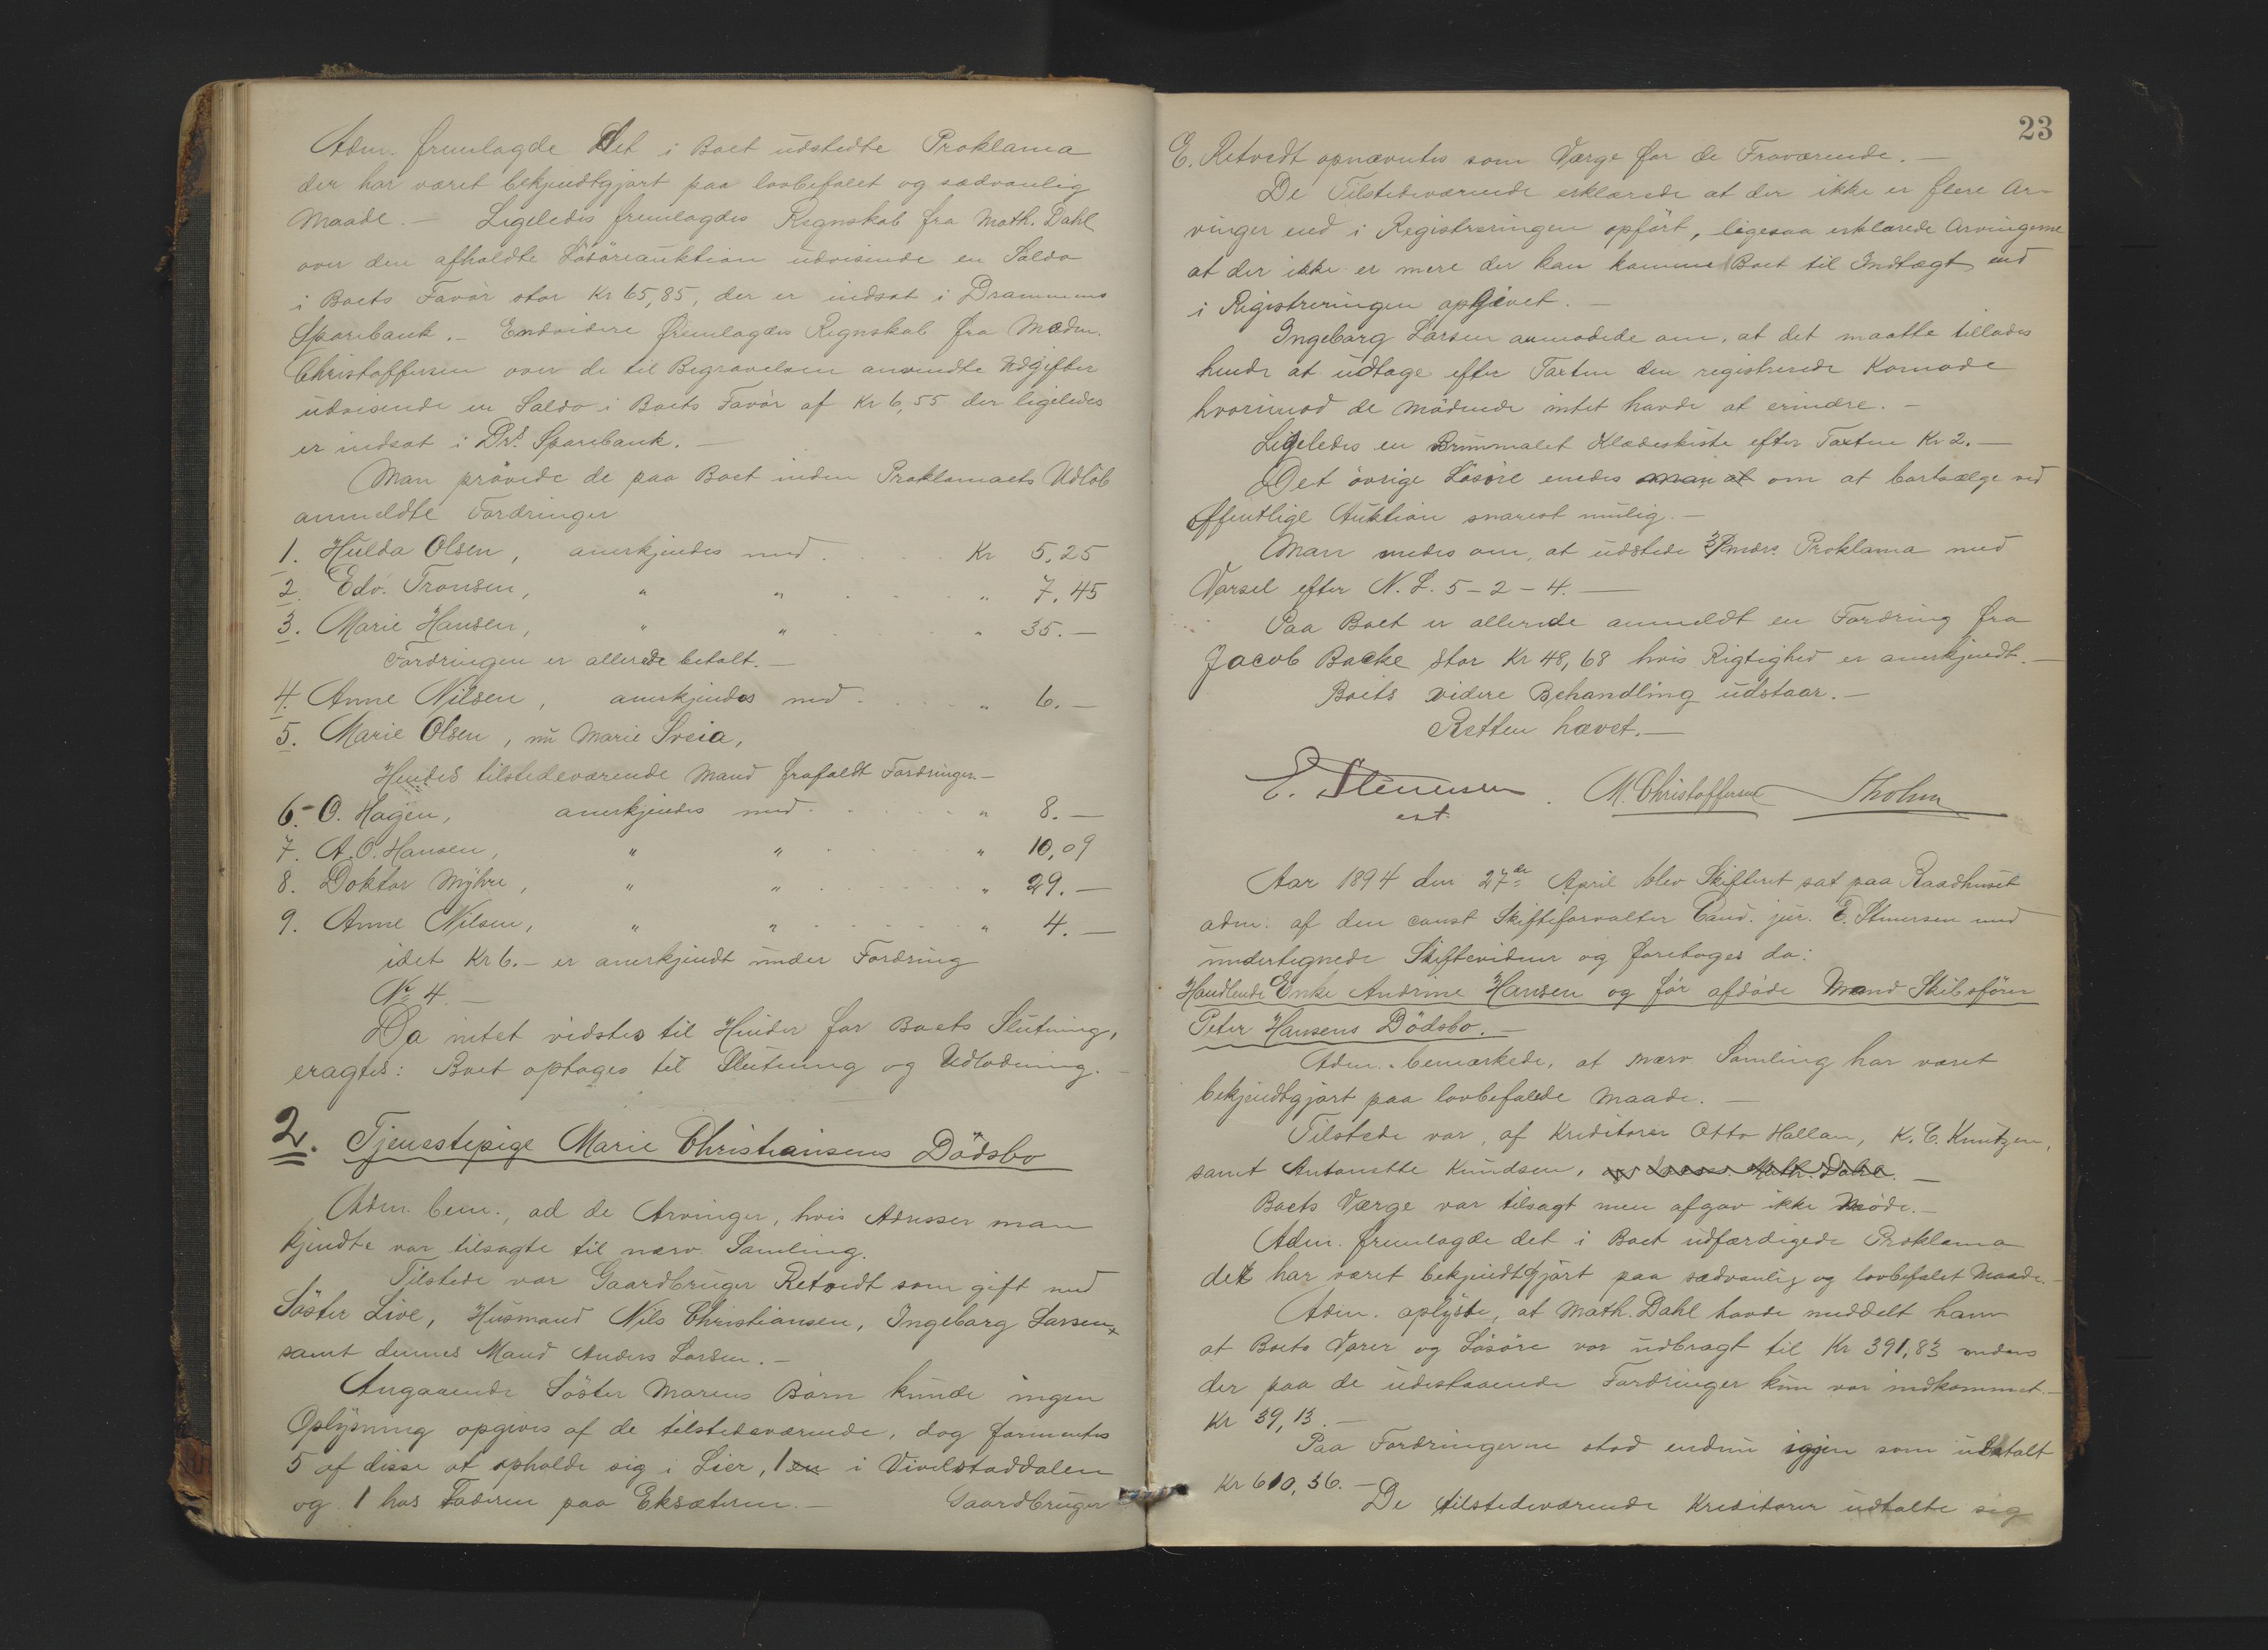 Adm. fremlagde det i Boet udstedte Proklama
der har været bekjendtgjort paa lovbefalet og sædvanlig
Maade. — Ligeledes fremlagdes Regnskab fra Math. Dahl
over den afholdte Lösöreauktion udvisende en Saldo
i Boets Favör stor Kr 65,85, der er indsat i Drammens
Sparebank. — Endvidere fremlagdes Regnskab fra Madm.
Christoffersen over de til Begravelsen anvendte Udgifter
udvisende en Saldo i Boets Favör af Kr 6,55 der ligeledes
er indsat i Drs. Sparebank. —
Man prövede de paa Boet inden Proklamaets Udlöb
anmeldte Fordringer
1. Hulda Olsen, anerkjendes med . . . Kr 5,25
2. Edv. Fransen, " " . . . " 7,45
3. Marie Hansen, " " . . . " 35.—
Fordringen er allerede betalt. —
4. Anne Nilsen, anerkjendes med . . . " 6.—
5. Marie Olsen, nu Marie Sveia,
Hendes tilstedeværende Mand frafaldt Fordringen.—
6.- O. Hagen, anerkjendes med . . . " 8.—
7. A. O. Hansen, " " . . . " 10,09
8. Doktor Myhre, " " . . . " 29.—
9. Anne Nilsen, " " . . . " 4.—
idet Kr 6.— er anerkjendt under Fordring
No 4. —
Da intet vidstes til Hinder for Boets Slutning,
eragtes: Boet optages til Slutning og Udlodning. —
2. Tjenestepige Marie Christiansens Dödsbo
Adm. bem., ad de Arvinger, hvis Adresser man
kjendte var tilsagte til nærv. Samling.
Tilstede var Gaardbruger Retvedt som gift med
Söster Live, Husmand Nils Christiansen, Ingeborg Larsen
samt dennes Mand Anders Larsen. —
Angaaende Söster Marens Börn kunde ingen
Oplysning opgives af de tilstedeværende, dog formentes
5 af disse at opholde sig i Lier, 1 en i Vivelstaddalen
og 1 hos Faderen paa Eksæteren. — Gaardbruger
23
E. Retvedt opnævntes som Værge for de Fraværende. —
De Tilstedeværende erklærede at der ikke er flere Ar-
vinger end i Registreringen opfört, ligesaa erklærede Arvingerne
at der ikke er mere der kan komme Boet til Indtægt end
i Registreringen opgivet. —
Ingeborg Larsen anmodede om, at det maatte tillades
hende at udtage efter Taxten den registrerede Komode
hvorimod de Mödende intet havde at erindre. —
Ligeledes en Brunmalet Klædeskiste efter Taxten Kr 2. —
Det övrige Lösöre enedes man at om at bortsælge ved
offentlige Auktion snarest mulig. —
Man enedes om, at udstede 3 Mdrs. Proklama med
Varsel efter N. L. 5-2-4. —
Paa Boet er allerede anmeldt en Fordring fra
Jacob Backe stor Kr 48,68 hvis Rigtighed er anerkjendt. —
Boets videre Behandling udstaar. —
Retten hævet. —
E. Stenersen M. Christoffersen Tholm
cst.
Aar 1894 den 27de April blev Skifteret sat paa Raadhuset
adm. af den const Skifteforvalter Cand. jur. E. Stenersen med
undertegnede Skiftevidner og foretoges da:
Handlende Enke Andrine Hansen og för afdöde Mand Skibsförer
Peter Hansens Dödsbo. —
Adm. bemærkede, at nærv Samling har været
bekjendtgjort paa lovbefalede Maade. —
Tilstede var, af Kreditorer Otto Hallan, K. C. Knutzen,
samt Antonette Knudsen, Math. Dahl. —
Boets Værge var tilsagt men afgav ikke Möde. —
Adm. fremlagde det i Boet udfærdigede Proklama
det har været bekjendtgjört paa sædvanlig og lovbefalet Maade. —
Adm. oplyste, at Math. Dahl havde meddelt ham
at Boets Varer og Lösöre var udbragt til Kr 391,83 medens
der paa de udestaaende Fordringer kun var indkommet —
Kr 39,13. —
Paa Fordringerne stod endnu igjen som ubetalt
Kr 610,36. —
De tilstedeværende Kreditorer udtalte sig